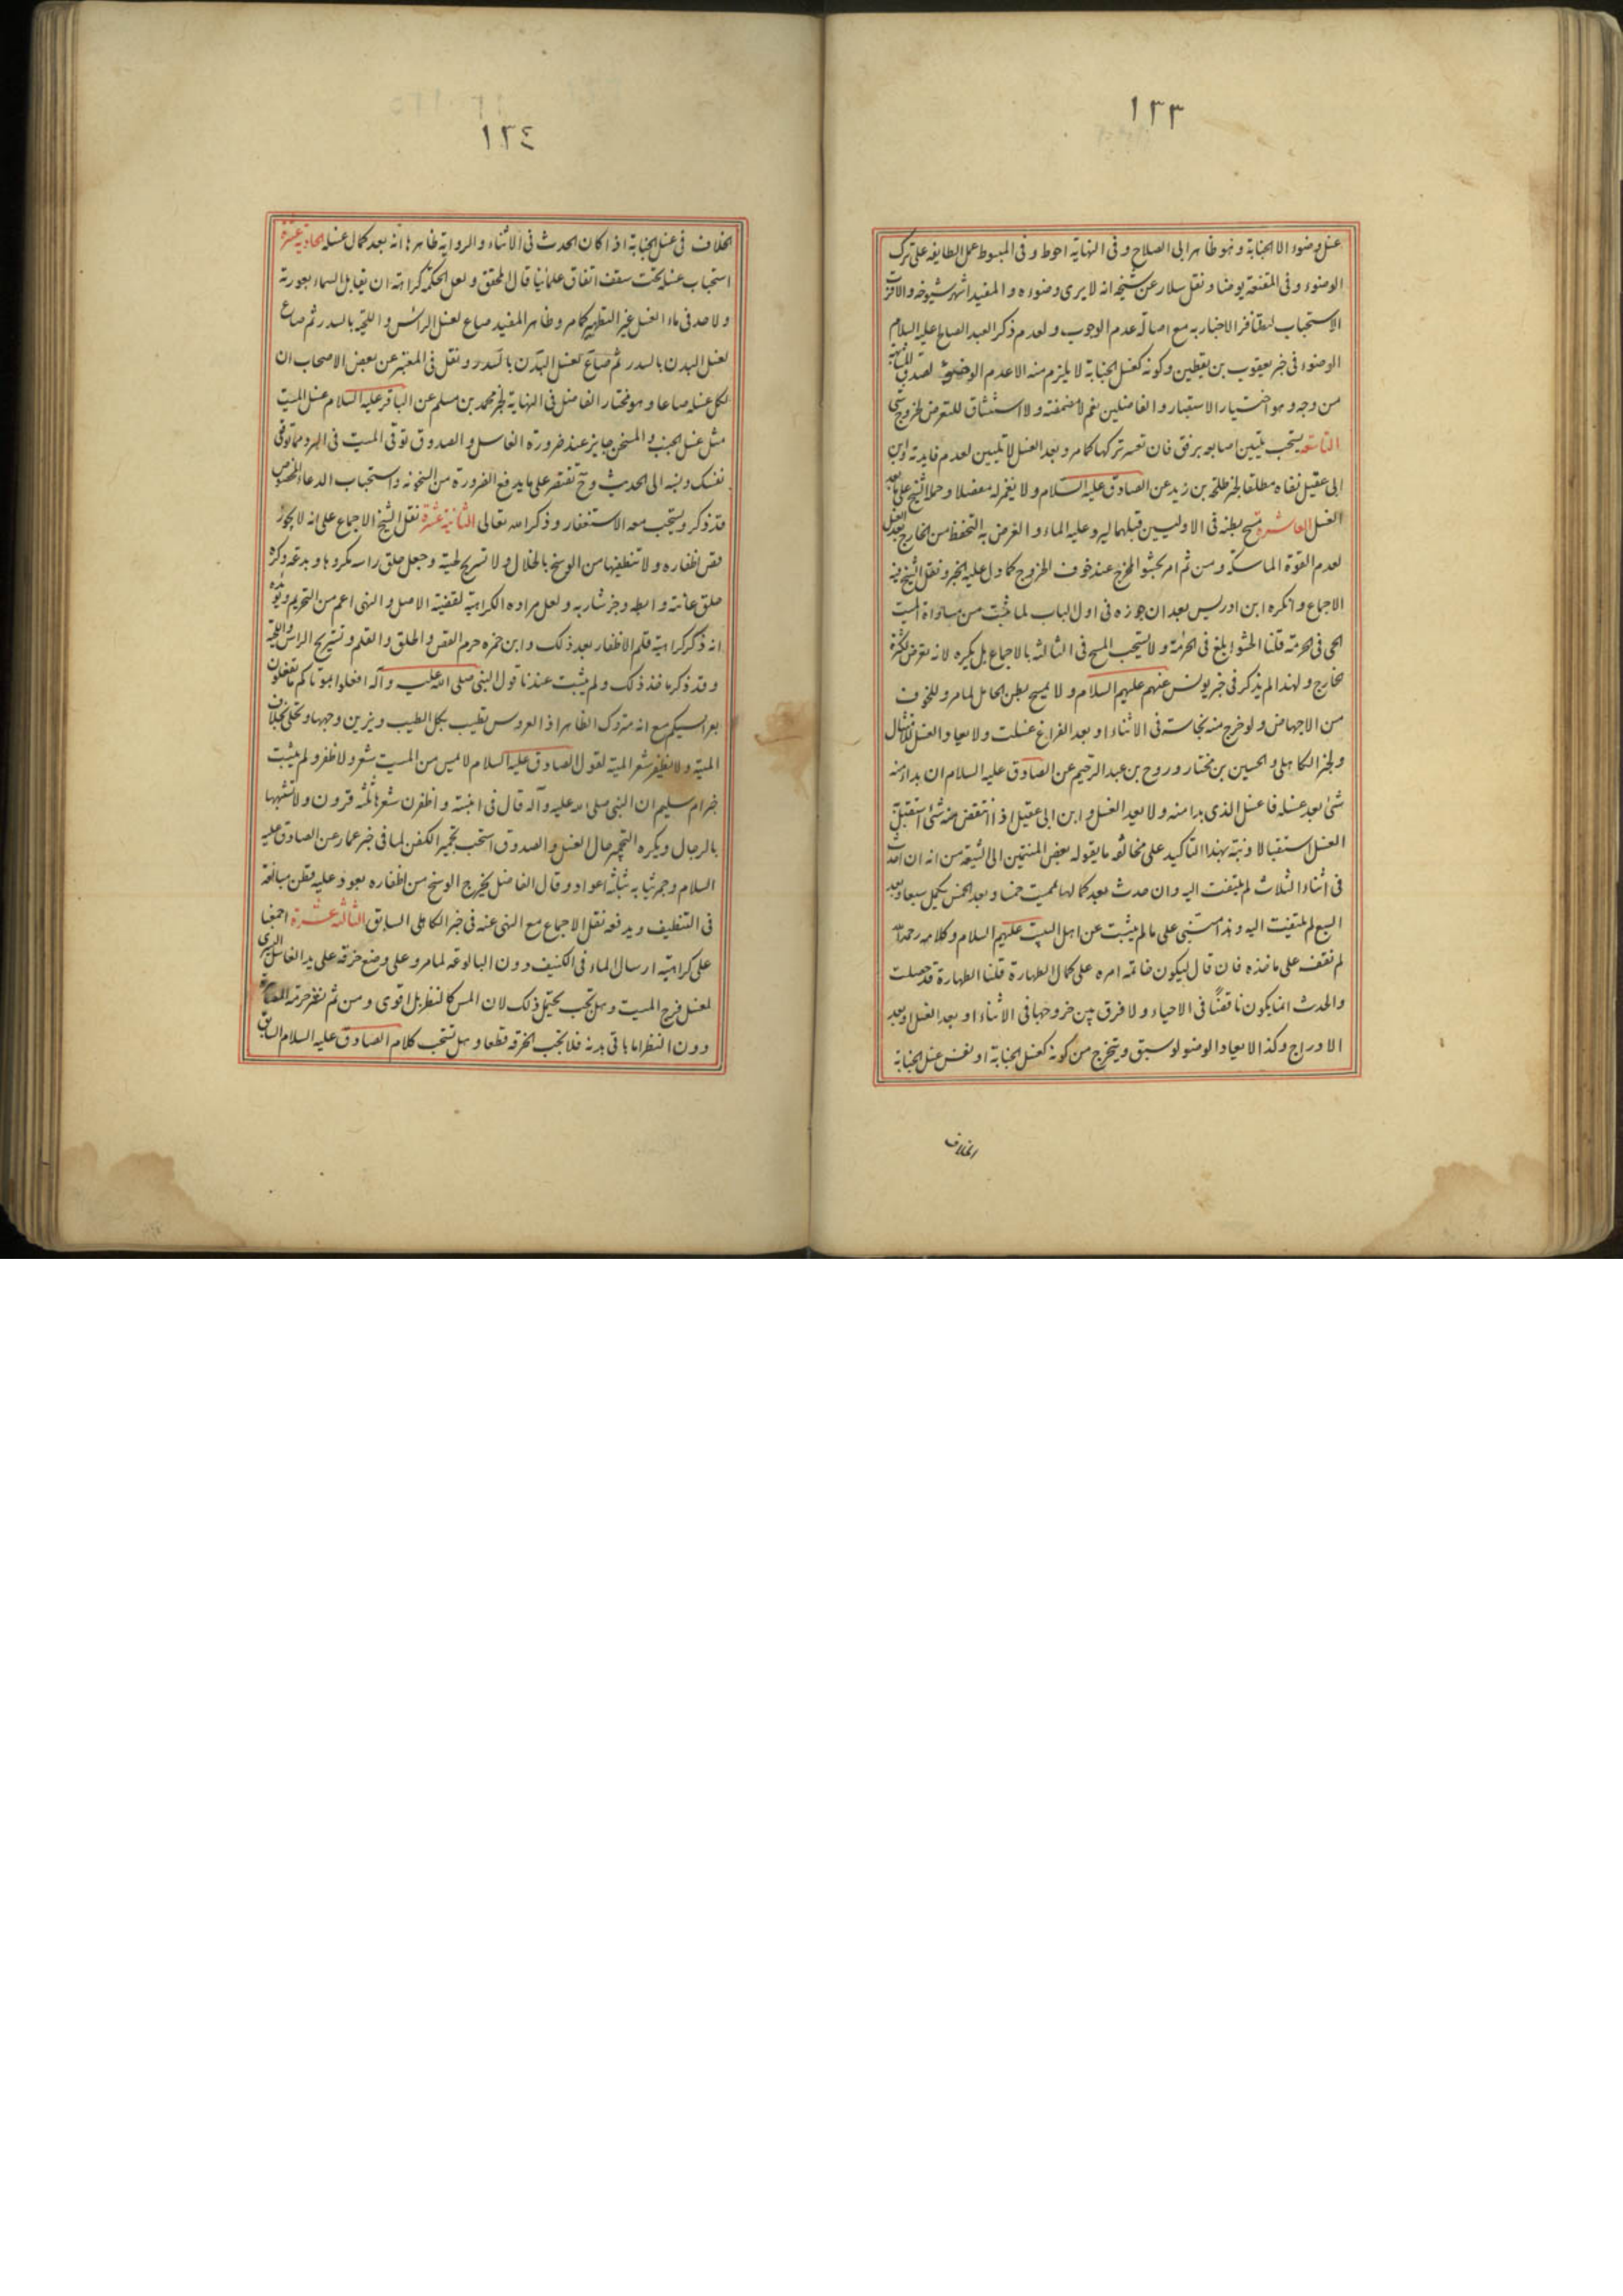 ١٣٣
غسل وضوء الا الجنابة وهو ظاهر ابى الصلاح وفى النهاية احوط وفى المبسوط عمل الطايفة على ترك
الوضوء وفى المقنعة يوضا ونقل سلار عن شيخه انه لا يرى وضوءه والمفيد اشهر شيوخه والاقرب
الاستحباب لتظافر الاخبار به مع اصالة عدم الوجوب ولعدم ذكر العبد الصالح عليه السلام
الوضوء فى خبر يعقوب بن يقطين وكونه كغسل الجنابة لا يلزم منه الا عدم الوضوء لصدق المشابهة
من وجه وهو اختيار الاستبصار والفاضلين نعم لا مضمضة ولا استنشاق للتعرض لخروج شئ
التاسعة يستحب تليين اصابعه برفق فان تعسر تركها كما مر وبعد الغسل لا تليين لعدم فايدته وابن
ابى عقيل نفاه مطلقا لخبر طلحة بن زيد عن الصادق عليه السلام ولا يغمز له مفصلا وحمله الشيخ على ما بعد
الغسل العاشرة مسح بطنه فى الاوليين قبلهما ليرد عليه الماء والغرض به التحفظ من الخارج بعد الغسل
لعدم القوة الماسكة ومن ثم امر بحشو المخرج عند خوف الخروج كما دل عليه الخبر ونقل الشيخ فيه
الاجماع وانكره ابن ادريس بعد ان جوزه فى اول الباب لما ثبت من مساواة الميت
الحى فى الحرمة قلنا الحشو ابلغ فى الحرمة ولا يستحب المسح فى الثالثة بالاجماع بل يكره لانه تعرض لكثرة
الخارج ولهذا لم يذكر فى خبر يونس عنهم عليهم السلام ولا يمسح بطن الحامل لما مر وللخوف
من الاجهاض ولو خرج منه نجاسة فى الاثناء او بعد الفراغ غسلت ولا يعاد الغسل للامتثال
ولخبر الكاهلى والحسين بن مختار وروح بن عبد الرحيم عن الصادق عليه السلام ان بدا منه
شئ بعد غسله فاغسل الذى بدا منه ولا تعيد الغسل وابن ابى عقيل اذا انتقض منه شئ استقبل به
الغسل استقبالا ونبه بهذا التاكيد على مخالفة ما يقوله بعض المنتمين الى الشيعة من انه ان احدث
فى اثناء الثلاث لم يلتفت اليه وان حدث بعد كمالها تممت خمسا وبعد الخمس يكمل سبعا وبعد
السبع لم يلتفت اليه وهذا مبنى على ما لم يثبت عن اهل البيت عليهم السلام وكلامه رحمه الله
لم نقف على ماخذه فان قال ليكون خاتمة امره على كمال الطهارة قلنا الطهارة قد حصلت
والحدث انما يكون ناقضا فى الاحياء ولا فرق بين خروجها فى الاثناء او بعد الغسل او بعد
الادراج وكذا لا يعاد الوضوء لو سبق ويتخرج من كونه كغسل الجنابة او نفس غسل الجنابة
الخلاف
١٣٤
الخلاف فى غسل الجنابة اذا كان الحدث فى الاثناء والرواية ظاهرها انه بعد كمال غسله الحادية عشرة
استحباب غسله تحت سقف اتفاق علمائنا قال المحقق ولعل الحكمة كراهة ان يقابل السماء بعورته
ولا حد فى ماء الغسل غير التطهير كما مر وظاهر المفيد صاع لغسل الراس واللحية بالسدر ثم صاع
لغسل البدن بالسدر ثم صاع لغسل البدن بالسدر ونقل فى المعتبر عن بعض الاصحاب ان
لكل غسله صاعا وهو مختار الفاضل فى النهاية لخبر محمد بن مسلم عن الباقر عليه السلام غسل الميت
مثل غسل الجنب والمسخن جايز عند ضرورة الغاسل والصدوق توقى الميت فى البرد مما توقى
نفسك ونبه الى الحديث وح تقتصر على ما يدفع الضرورة من السخونة واستحباب الدعاء المخصوص
قد ذكر ويستحب معه الاستغفار وذكر الله تعالى الثانية عشرة نقل الشيخ الاجماع على انه لا يجوز
قص اظفاره ولا تنظيفها من الوسخ بالخلال ولا تسريح لحيته وجعل حلق راسه مكروها وبدعة وكره
حلق عانته وابطه وجز شاربه ولعل مراده الكراهية لقضية الاصل والنهى اعم من التحريم ويؤيده
انه ذكر كراهية قلم الاظفار بعد ذلك وابن حمزة حرم القص والحلق والقلم وتسريح الراس واللحية
وقد ذكر ماخذ ذلك ولم يثبت عندنا قول النبى صلى الله عليه وآله افعلوا بموتاكم ما تفعلون
بعرايسكم مع انه متروك الظاهر اذ العروس تطيب بكل الطيب ويزين وجهها وتحلى بخلاف
الميتة ولا يظفر شعر الميتة لقول الصادق عليه السلام لا يمس من الميت شعر ولا ظفر ولم يثبت
خبر ام سليم ان النبى صلى الله عليه وآله قال فى ابنته واظفرن شعرها ثلثة قرون ولا تشبهها
بالرجال ويكره التجمير حال الغسل والصدوق استحب تجمير الكفن لما فى خبر عمار عن الصادق عليه
السلام وجمر ثيابه بثلثة اعواد وقال الفاضل يخرج الوسخ من اظفاره بعود عليه قطن مبالغة
فى التنظيف ويدفعه نقل الاجماع مع النهى عنه فى خبر الكاهلى السابق الثالثة عشرة اجمعنا
على كراهية ارسال الماء فى الكنيف دون البالوعة لما مر وعلى وضع خرقة على يد الغاسل اليسرى
لغسل فرج الميت وهل تجب يحتمل ذلك لان المس كالنظر بل اقوى ومن ثم نشر حرمة المصاهرة
دون النظر اما باقى بدنه فلا تجب الخرقة قطعا وهل تستحب كلام الصادق عليه السلام السابق